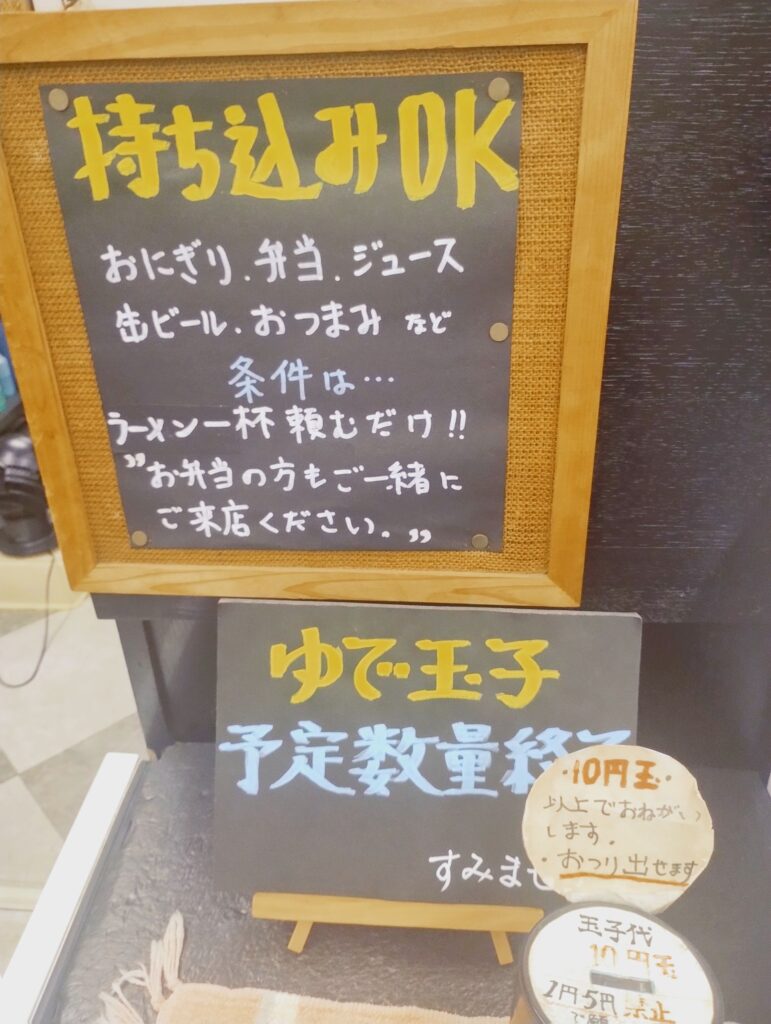 持ち込みOK
おにぎり.弁当.ジュース
缶ビール.おつまみ など
条件は…
ラーメン一杯頼むだけ!!
〝お弁当の方もご一緒に
ご来店ください。〟
ゆで玉子
予定数量終了
すみませ
・10円玉・
以上でおねがい
します。
・おつり出せます
玉子代
10円玉
1円・5円 禁止